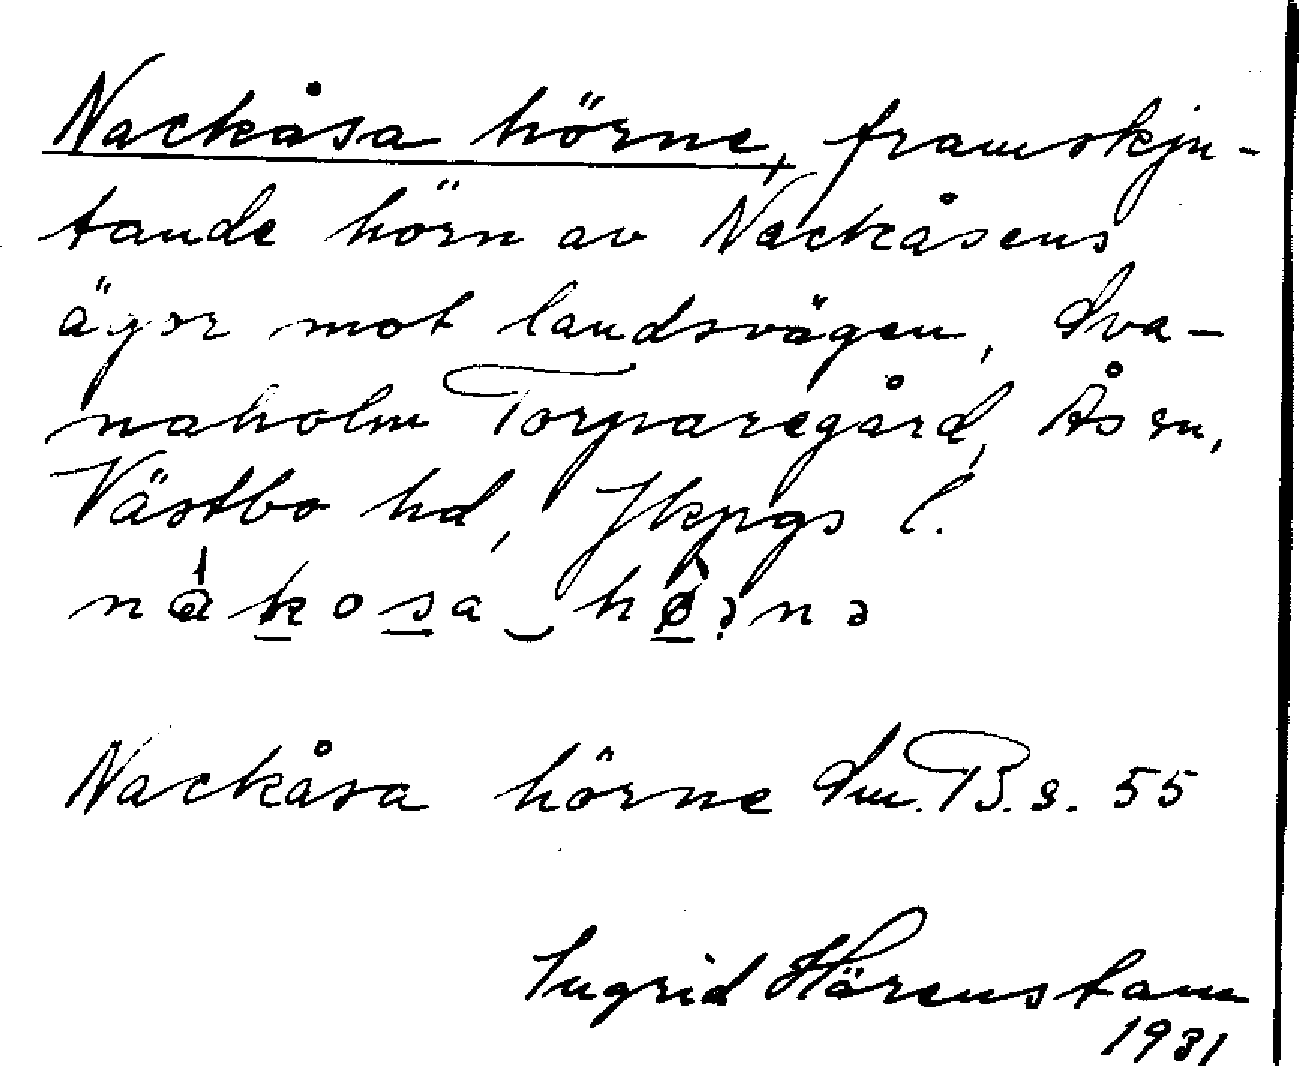 Nackåsa hörne, framskju-
tande hörn av Nackåsens
ägor mot landsvägen, Sva-
naholm Torparegård, Ås sn,
Västbo hd, Jkpgs l.
Nackåsa hörne Sm. B. s. 55
Ingrid Härenstam
1931